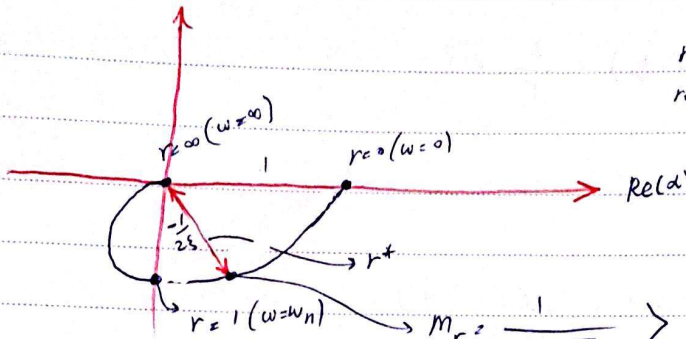 r
r
r=∞ (ω=∞)
1
r=0 (ω=0)
Re(α
-1/2ξ
r*
r=1 (ω=ωn)
Mr = 1